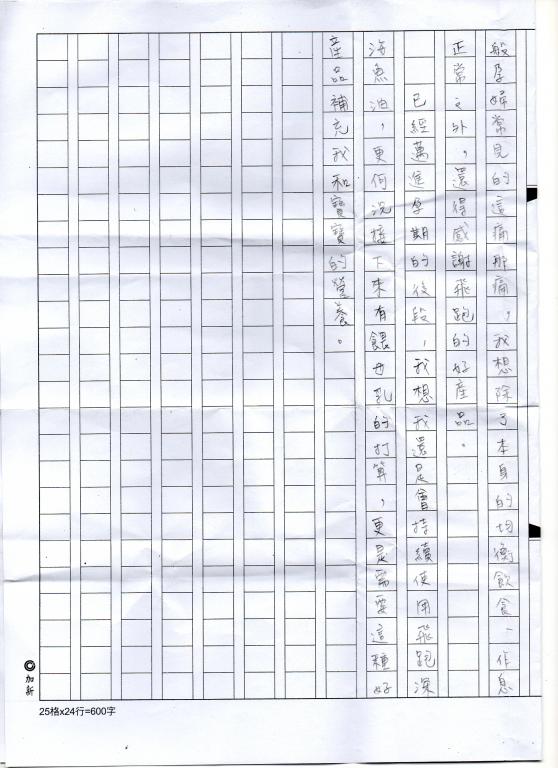 般孕婦常見的這痛那痛，我想除了本身的均衡飲食、作息
正常之外，還得感謝飛跑的好產品。
已經邁進孕期的後段，我想我還是會持續使用飛跑深
海魚油，更何況接下來有餵母乳的打算，更是需要這種好
產品補充我和寶寶的營養。
加新
25格x24行=600字